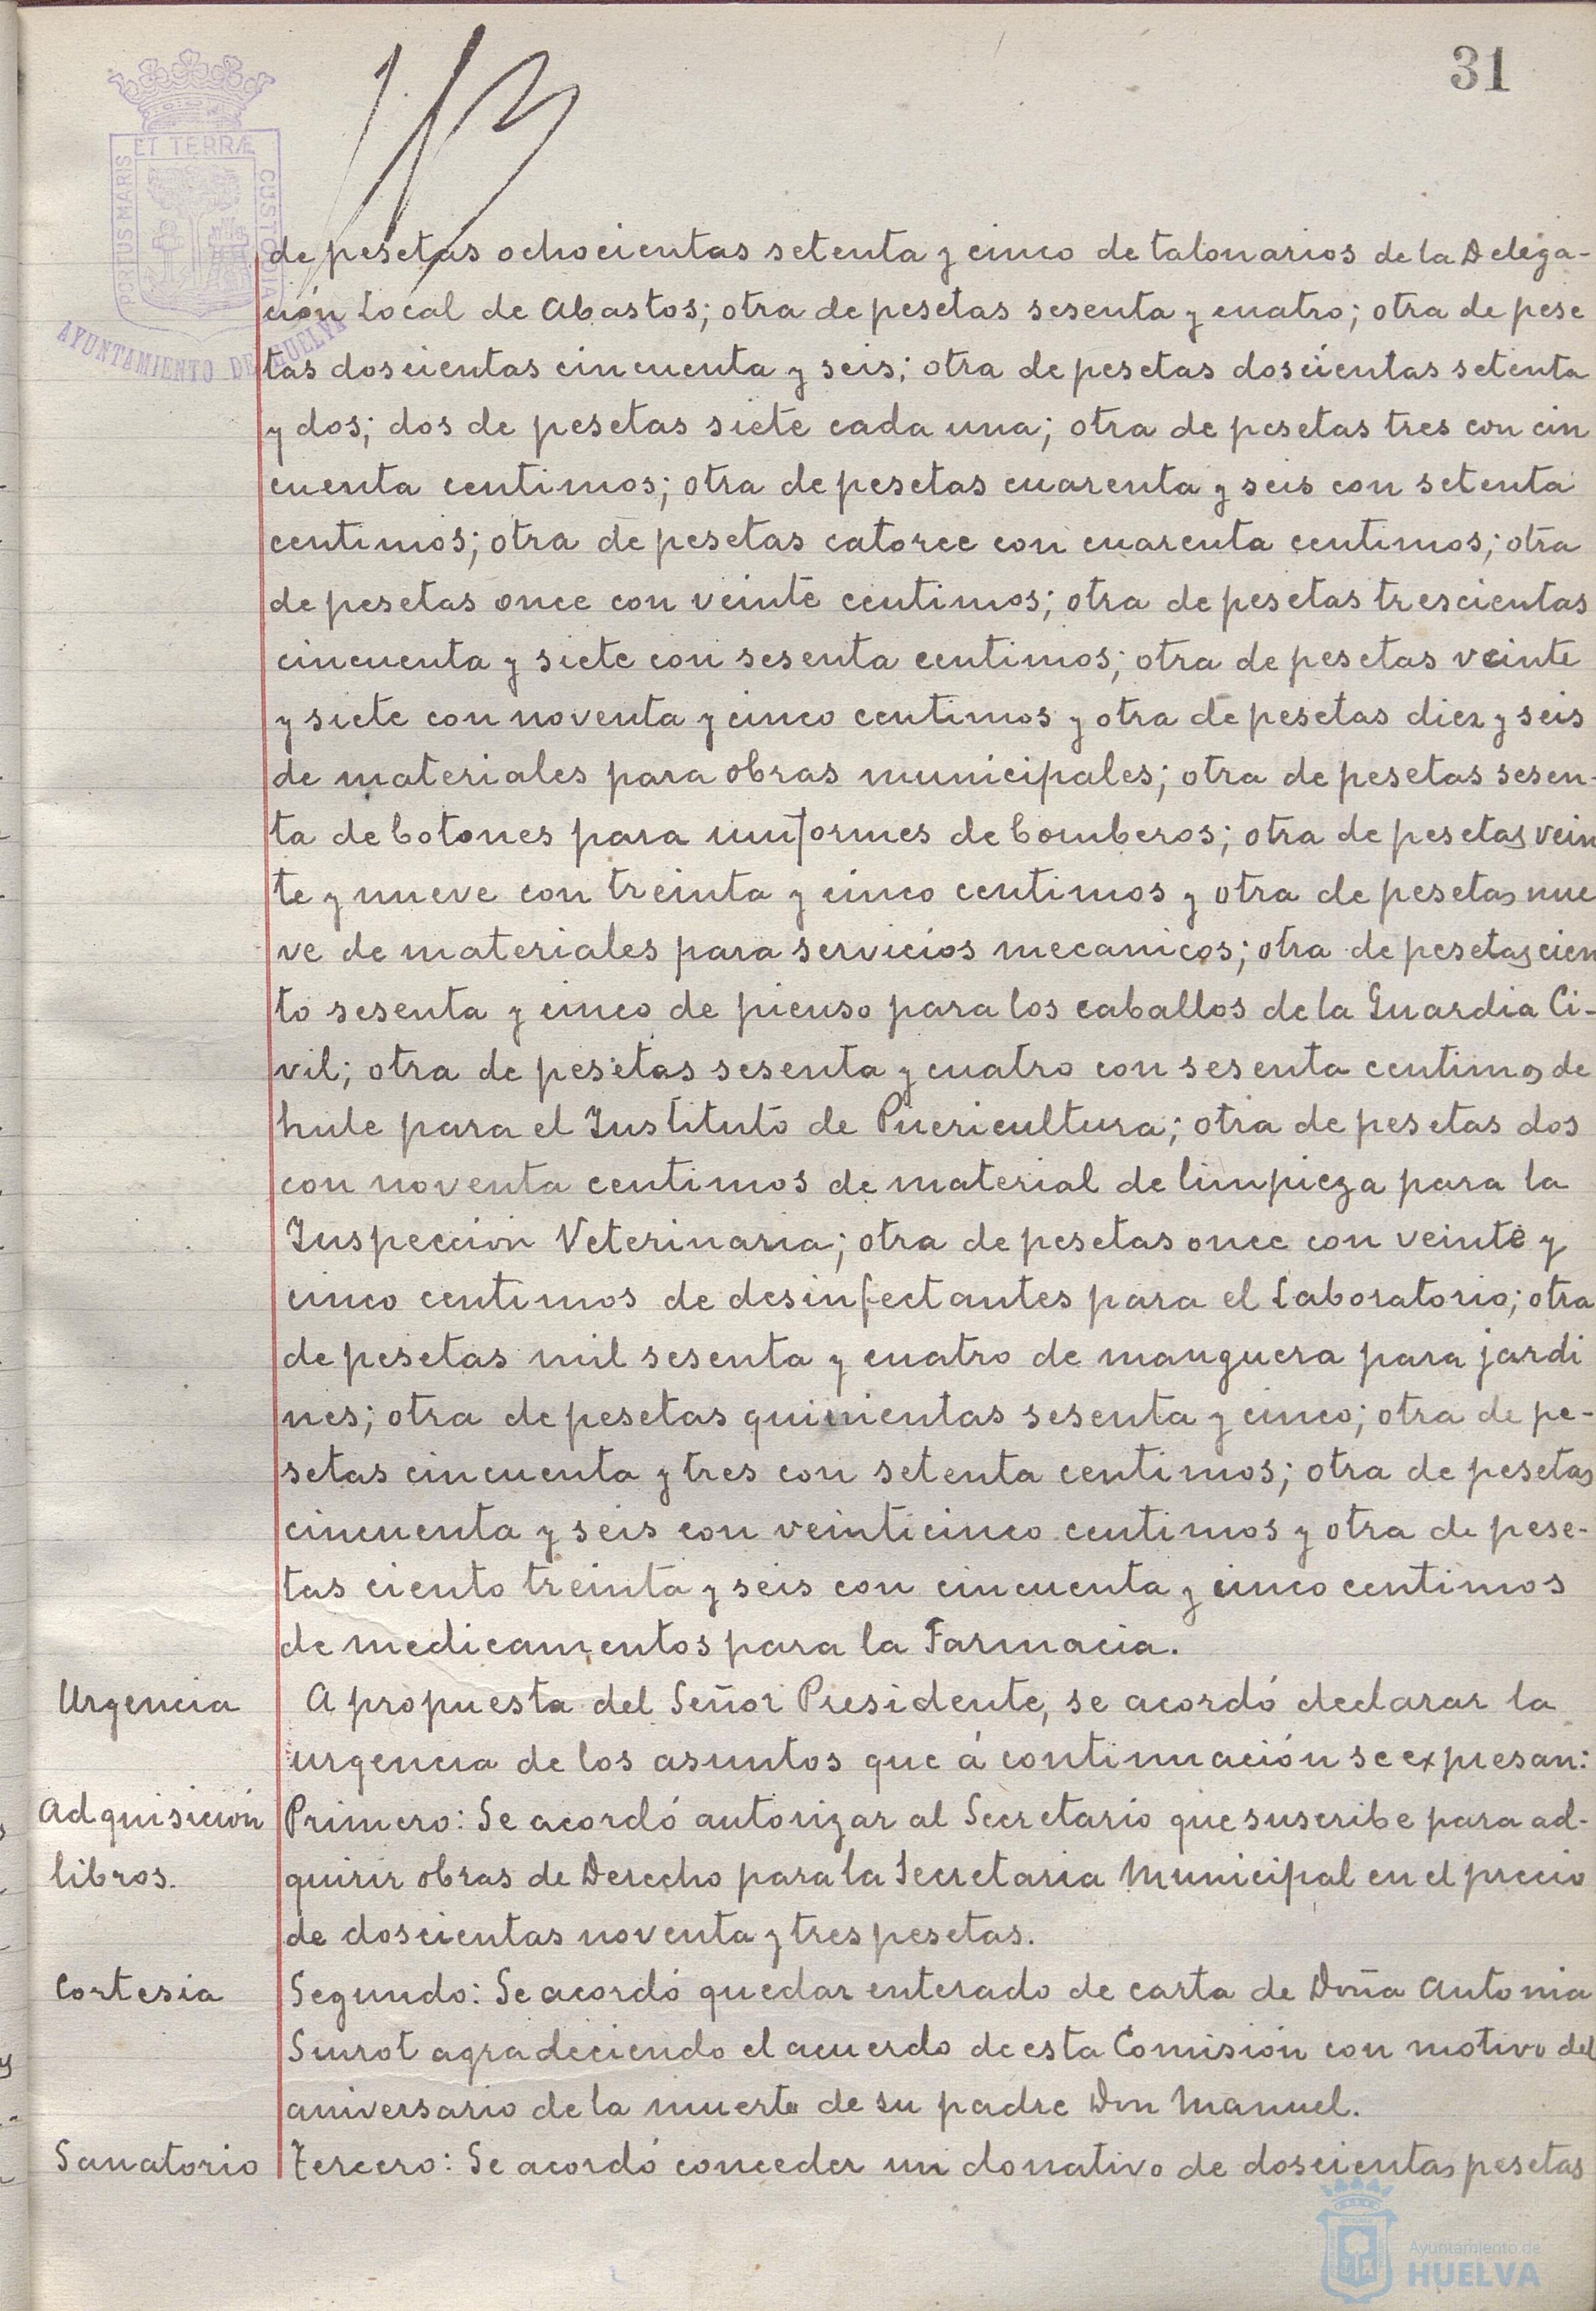 31
ET TERRÆ
PORTUS MARIS
CUSTODIA
AYUNTAMIENTO DE HUELVA
de pesetas ochocientas setenta y cinco de talonarios de la Delega-
ción Local de Abastos; otra de pesetas sesenta y cuatro; otra de pese
tas doscientas cincuenta y seis; otra de pesetas doscientas setenta
y dos; dos de pesetas siete cada una; otra de pesetas tres con cin
cuenta centimos; otra de pesetas cuarenta y seis con setenta
centimos; otra de pesetas catorce con cuarenta centimos; otra
de pesetas once con veinte centimos; otra de pesetas trescientas
cincuenta y siete con sesenta centimos; otra de pesetas veinte
y siete con noventa y cinco centimos y otra de pesetas diez y seis
de materiales para obras municipales; otra de pesetas sesen-
ta de botones para uniformes de bomberos; otra de pesetas vein
te y nueve con treinta y cinco centimos y otra de pesetas nue
ve de materiales para servicios mecanicos; otra de pesetas cien
to sesenta y cinco de pienso para los caballos de la Guardia Ci-
vil; otra de pesetas sesenta y cuatro con sesenta centimos de
hule para el Instituto de Puericultura; otra de pesetas dos
con noventa centimos de material de limpieza para la
Inspección Veterinaria; otra de pesetas once con veinte y
cinco centimos de desinfectantes para el Laboratorio; otra
de pesetas mil sesenta y cuatro de manguera para jardi
nes; otra de pesetas quinientas sesenta y cinco; otra de pe-
setas cincuenta y tres con setenta centimos; otra de pesetas
cincuenta y seis con veinticinco centimos y otra de pese-
tas ciento treinta y seis con cincuenta y cinco centimos
de medicamentos para la Farmacia.
Urgencia A propuesta del Señor Presidente, se acordó declarar la
urgencia de los asuntos que á continuación se expresan:
Adquisición Primero: Se acordó autorizar al Secretario que suscribe para ad-
libros. quirir obras de Derecho para la Secretaria Municipal en el precio
de doscientas noventa y tres pesetas.
Cortesia Segundo: Se acordó quedar enterado de carta de Doña Antonia
Siurot agradeciendo el acuerdo de esta Comisión con motivo del
aniversario de la muerte de su padre Don Manuel.
Sanatorio Tercero: Se acordó conceder un donativo de doscientas pesetas
Ayuntamiento de
HUELVA